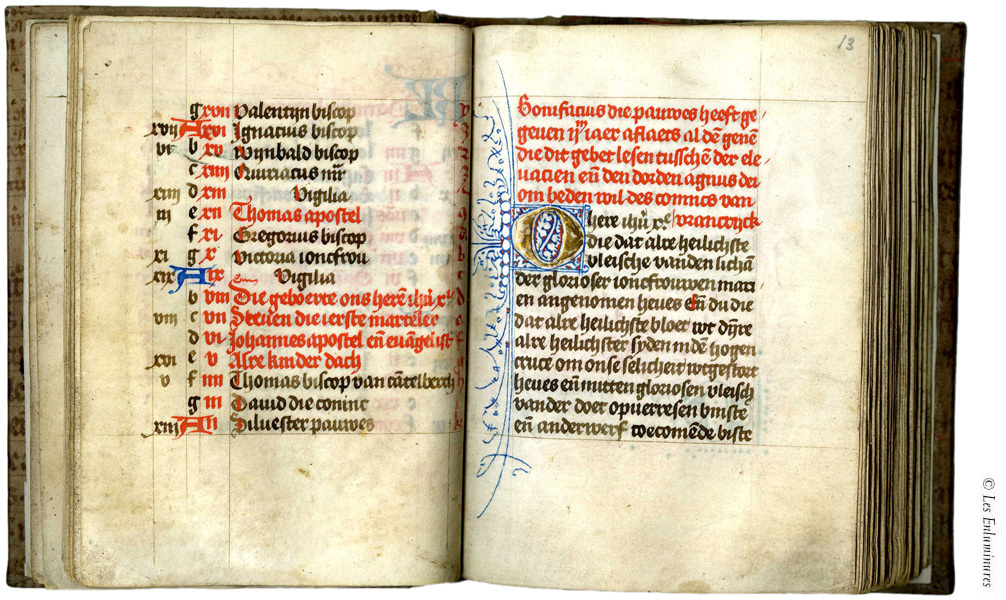 g xvii Valentijn biscop
xvij A xvi Ignacius biscop
vi b xv Wijnbald biscop
c xiiii
xiiii d xiii Vigilia
iii e xii Thomas apostel
f xi Gregorius biscop
xi g x Victoria ioncfrou
xix A ix Vigilia
b viii Die geboerte ons herē ihū xp̄
viii c vii Steuen die ierste marteler
d vi Johannes apostel eñ euāgelist
xvi e v Alre kinder dach
v f iiii Thomas biscop van cātelberch
g iii Dauid die coninc
xiii A ii Siluester pauwes
13
Bonifacius die pauwes heeft ge
geuen iaer aflaets al dē genē
die dit gebet lesen tusschē der ele
uacien eñ den dorden agnus dei
om beden wil des conincs van
vrancryck
O here ihū xp̄e
die dat alre heilichste
vleische vanden lichā
der glorioser ioncfrouwen mari
en angenomen heues eñ du die
dat alre heilichste bloet wt dijnre
alre heilichster syden in dē hogen
cruce om onse selicheit wtgestort
heues eñ mitten gloriosen vleisch
vander doet op verresen biste
eñ anderwerf toecomēde biste
© Les Enluminures